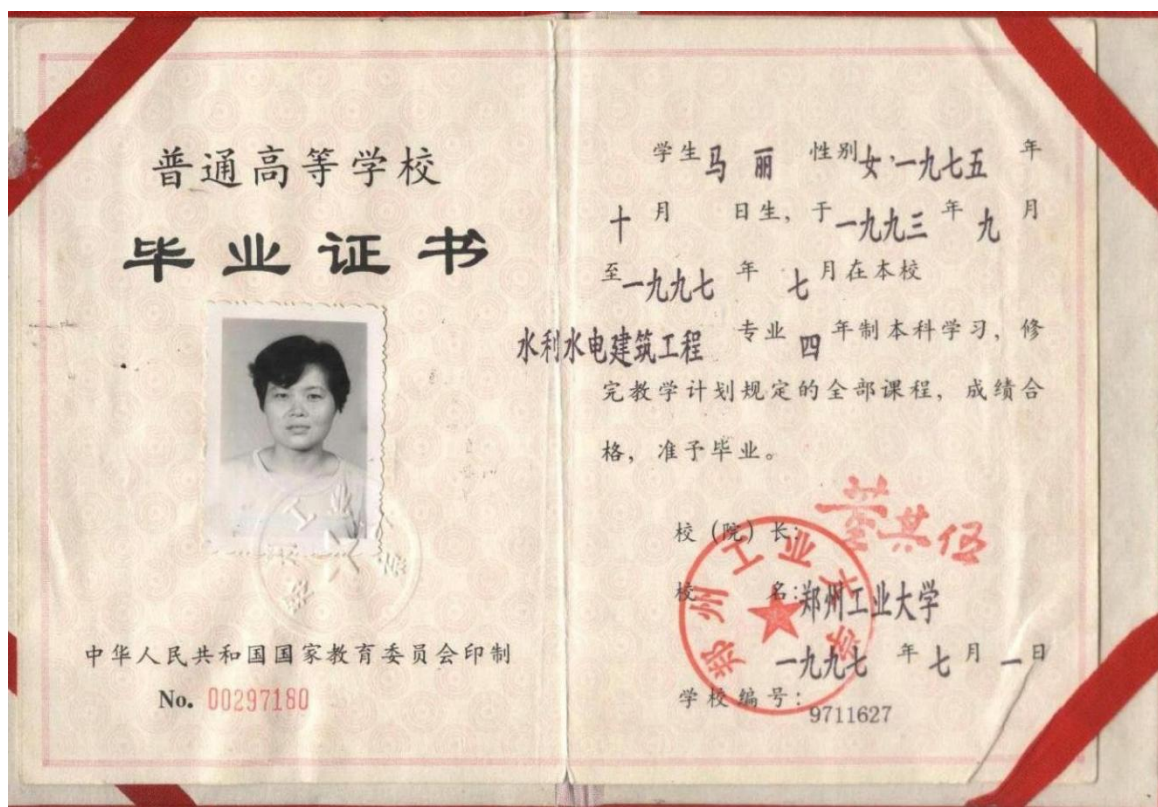 普通高等学校
毕业证书
中华人民共和国国家教育委员会印制
No. 00297180
学生 马丽 性别 女,一九七五 年
十 月 日生, 于 一九九三 年 九 月
至 一九九七 年 七 月在本校
水利水电建筑工程 专业 四 年制本科学习, 修
完教学计划规定的全部课程, 成绩合
格, 准予毕业。
校(院)长:
校 名: 郑州工业大学
一九九七 年 七 月 一 日
学校编号: 9711627
郑州工业大学